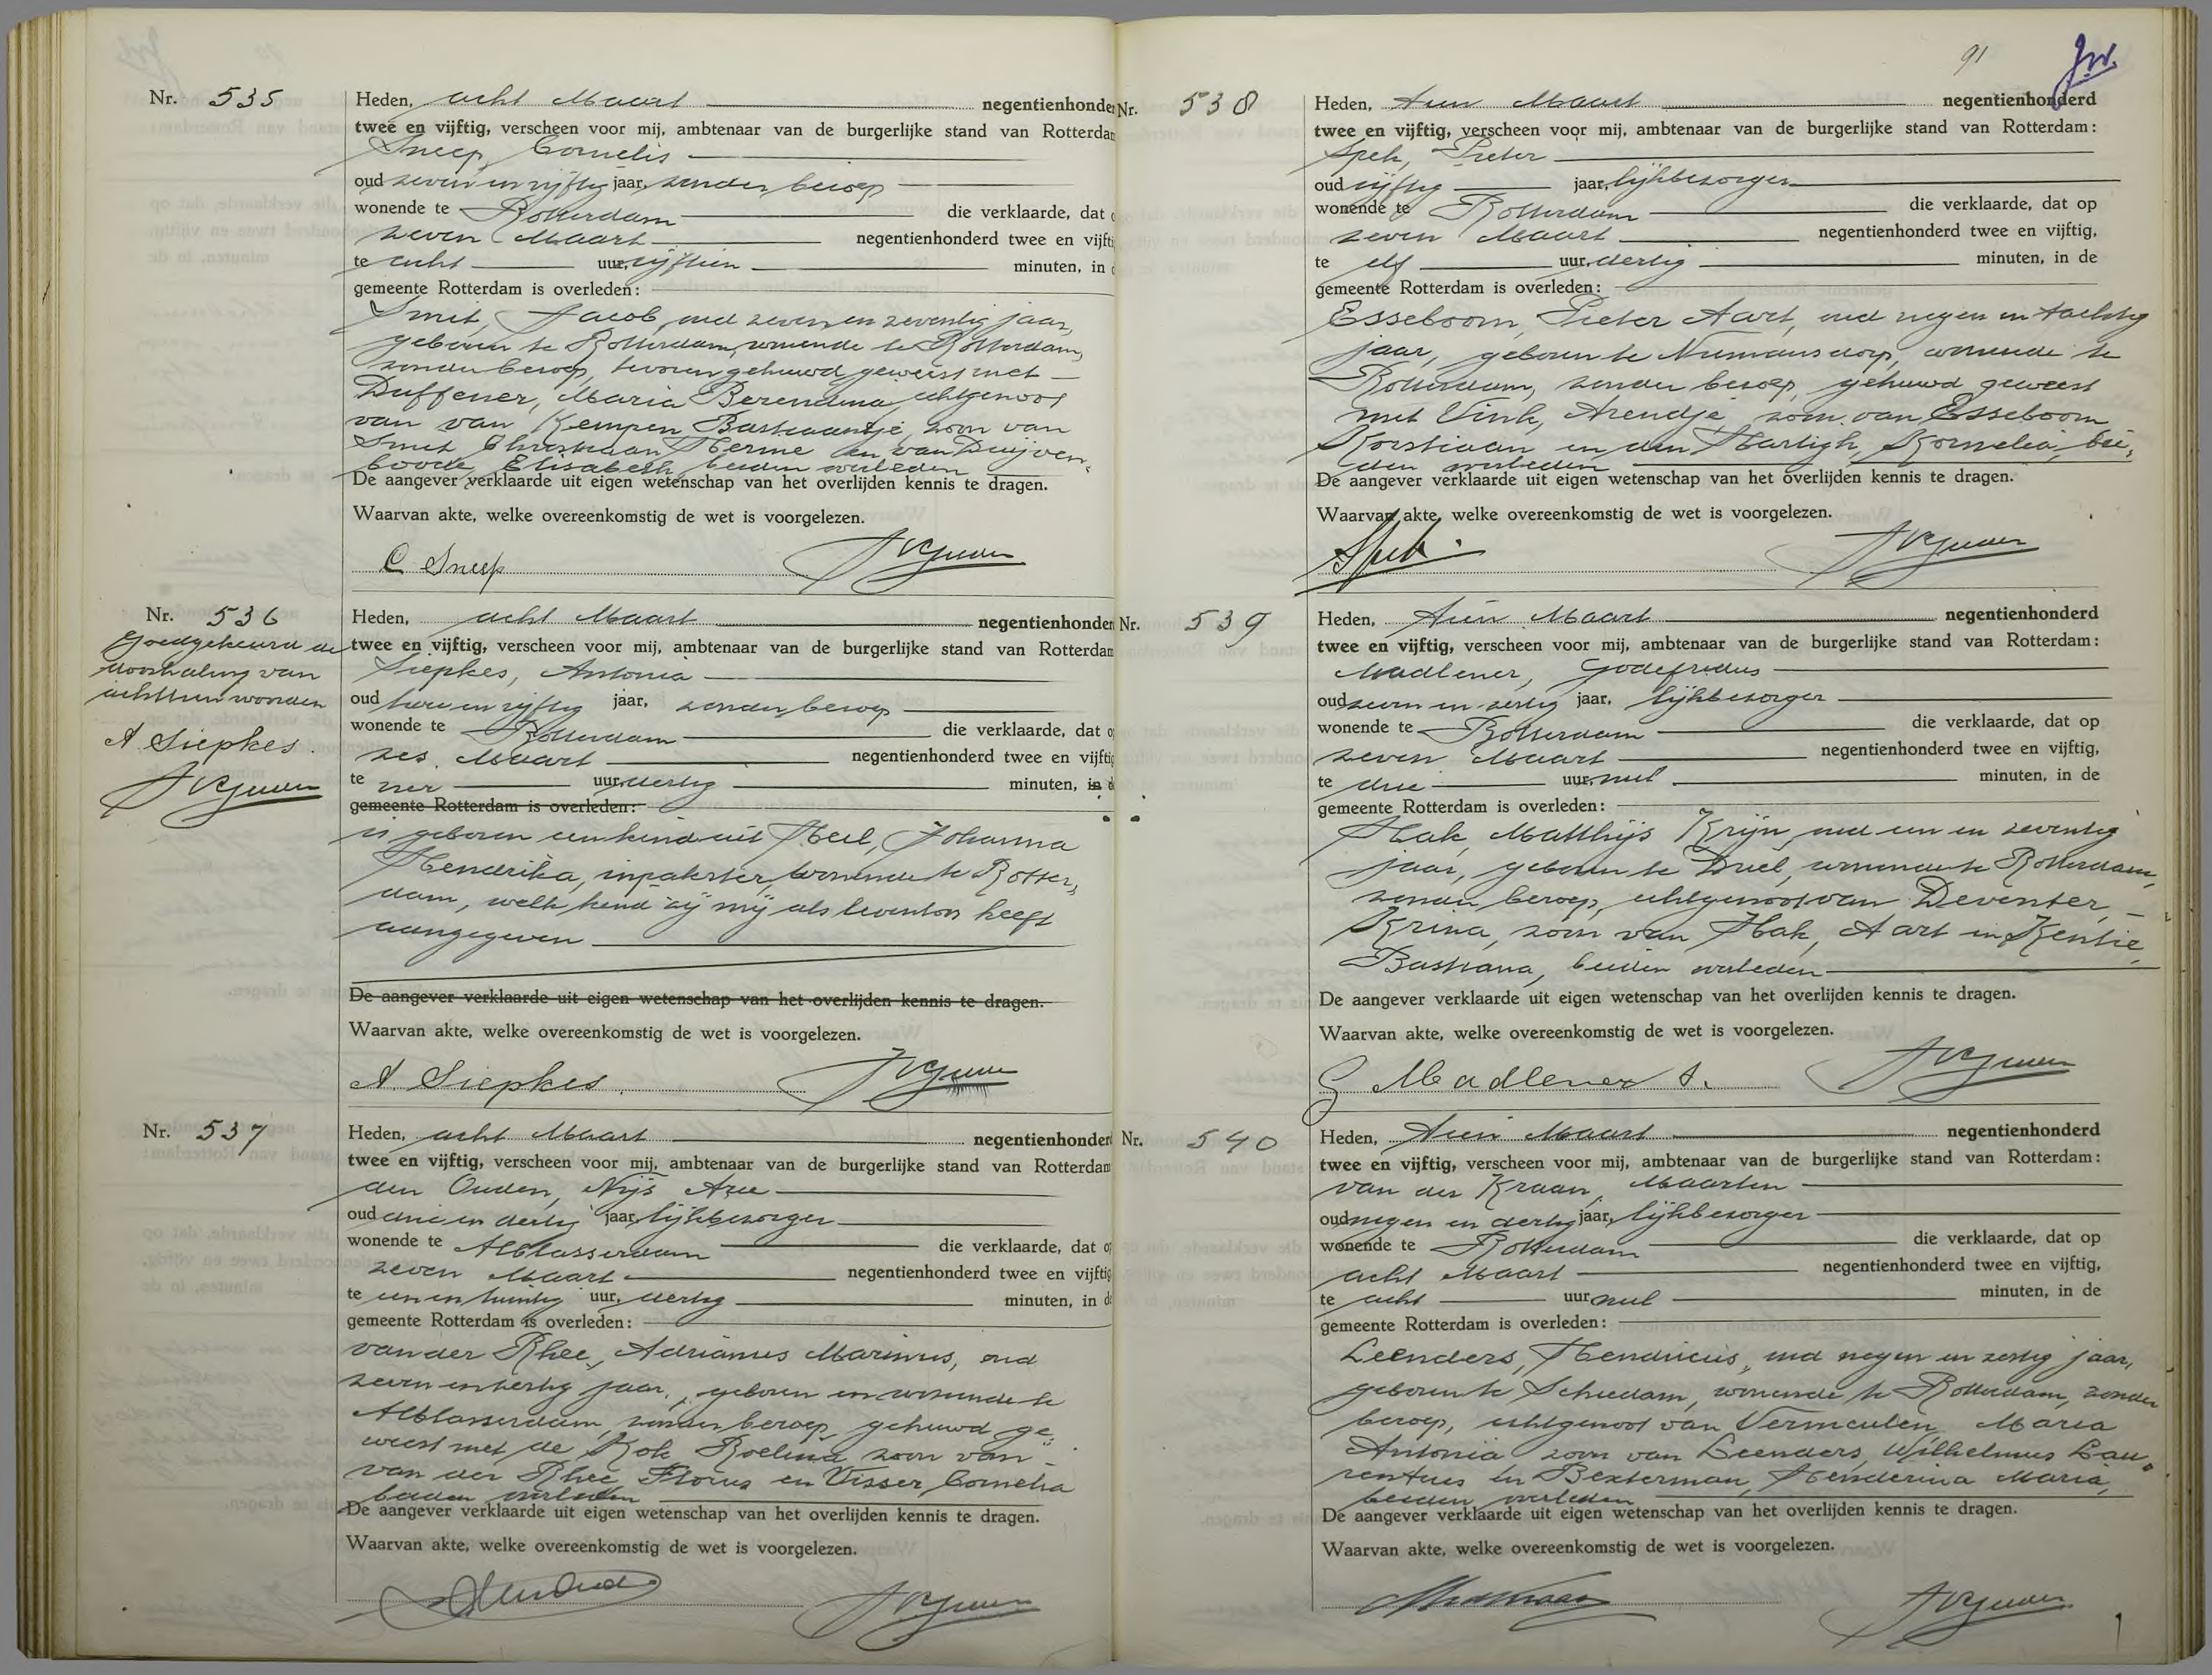 Nr. 535
Heden, acht Maart negentienhonder
twee en vijftig, verscheen voor mij, ambtenaar van de burgerlijke stand van Rotterdam
Sneep, Cornelis
oud zeven en vijftig jaar, zonder beroep
wonende te Rotterdam die verklaarde, dat o
zeven Maart negentienhonderd twee en vijfti
te acht uur, vijftien minuten, in d
gemeente Rotterdam is overleden:
Smit, Jacob, oud zeven en zeventig jaar,
geboren te Rotterdam, wonende te Rotterdam,
zonder beroep, tevoren gehuwd geweest met
Duffener, Maria Berendina, echtgenoot
van van Kempen Bastiaantje, zoon van
Smit, Christiaan Herme en van Duijven-
boode, Elisabeth, beiden overleden
De aangever verklaarde uit eigen wetenschap van het overlijden kennis te dragen.
Waarvan akte, welke overeenkomstig de wet is voorgelezen.
C Sneep
Nr. 536
Goedgekeurd de
doorhaling van
achttien woorden
A. Siepkes.
Heden, acht Maart negentienhonder
twee en vijftig, verscheen voor mij, ambtenaar van de burgerlijke stand van Rotterdam
Siepkes, Antonia
oud twee en vijftig jaar, zonder beroep
wonende te Rotterdam die verklaarde, dat o
zes Maart negentienhonderd twee en vijftig
te vier uur, dertig minuten, in d
gemeente Rotterdam is overleden:
is geboren een kind uit Heil, Johanna
Hendrika, inpakster, wonende te Rotter-
dam, welk kind zij mij als levenloos heeft
aangegeven
De aangever verklaarde uit eigen wetenschap van het overlijden kennis te dragen.
Waarvan akte, welke overeenkomstig de wet is voorgelezen.
A. Siepkes.
Nr. 537
Heden, acht Maart negentienhonder
twee en vijftig, verscheen voor mij, ambtenaar van de burgerlijke stand van Rotterdam
den Ouden, Nijs Arie
oud drie en dertig jaar, lijkbezorger
wonende te Alblasserdam die verklaarde, dat o
zeven Maart negentienhonderd twee en vijftig
te een en twintig uur, dertig minuten, in d
gemeente Rotterdam is overleden:
van der Rhee, Adrianus Marinus, oud
zeven en zestig jaar, geboren en wonende te
Alblasserdam, zonder beroep, gehuwd ge-
weest met de Kok Roelina zoon van
van der Rhee Florus en Visser, Cornelia
beiden overleden
De aangever verklaarde uit eigen wetenschap van het overlijden kennis te dragen.
Waarvan akte, welke overeenkomstig de wet is voorgelezen.
91
Nr. 538
Heden, tien Maart negentienhonderd
twee en vijftig, verscheen voor mij, ambtenaar van de burgerlijke stand van Rotterdam:
Spek, Pieter
oud vijftig jaar, lijkbezorger
wonende te Rotterdam die verklaarde, dat op
zeven Maart negentienhonderd twee en vijftig,
te elf uur, dertig minuten, in de
gemeente Rotterdam is overleden:
Esseboom, Pieter Aart, oud negen en tachtig
jaar, geboren te Numansdorp, wonende te
Rotterdam, zonder beroep, gehuwd geweest
met Vink, Arendje zoon van Esseboom
Korstiaan en den Hartigh, Kornelia, bei-
den overleden
De aangever verklaarde uit eigen wetenschap van het overlijden kennis te dragen.
Waarvan akte, welke overeenkomstig de wet is voorgelezen.
Spek.
Nr. 539
Heden, tien Maart negentienhonderd
twee en vijftig, verscheen voor mij, ambtenaar van de burgerlijke stand van Rotterdam:
Madlener, Godefridus
oud zeven en zestig jaar, lijkbezorger
wonende te Rotterdam die verklaarde, dat op
zeven Maart negentienhonderd twee en vijftig,
te drie uur, nul minuten, in de
gemeente Rotterdam is overleden:
Hak, Matthijs Krijn, oud een en zeventig
jaar, geboren te Driel, wonende te Rotterdam,
zonder beroep, echtgenoot van Deventer,
Krina, zoon van Hak, Aart en Kentie,
Bastiana, beiden overleden
De aangever verklaarde uit eigen wetenschap van het overlijden kennis te dragen.
Waarvan akte, welke overeenkomstig de wet is voorgelezen.
G Madlener S.
Nr. 540
Heden, tien Maart negentienhonderd
twee en vijftig, verscheen voor mij, ambtenaar van de burgerlijke stand van Rotterdam:
van der Kraan, Maarten
oud negen en dertig jaar, lijkbezorger
wonende te Rotterdam die verklaarde, dat op
acht Maart negentienhonderd twee en vijftig,
te acht uur nul minuten, in de
gemeente Rotterdam is overleden:
Leenders, Hendricus, oud negen en zestig jaar,
geboren te Schiedam, wonende te Rotterdam, zonder
beroep, echtgenoot van Vermeulen, Maria
Antonia zoon van Leenders, Wilhelmus Lau-
rentius en Bexterman, Henderina Maria,
beiden overleden
De aangever verklaarde uit eigen wetenschap van het overlijden kennis te dragen.
Waarvan akte, welke overeenkomstig de wet is voorgelezen.